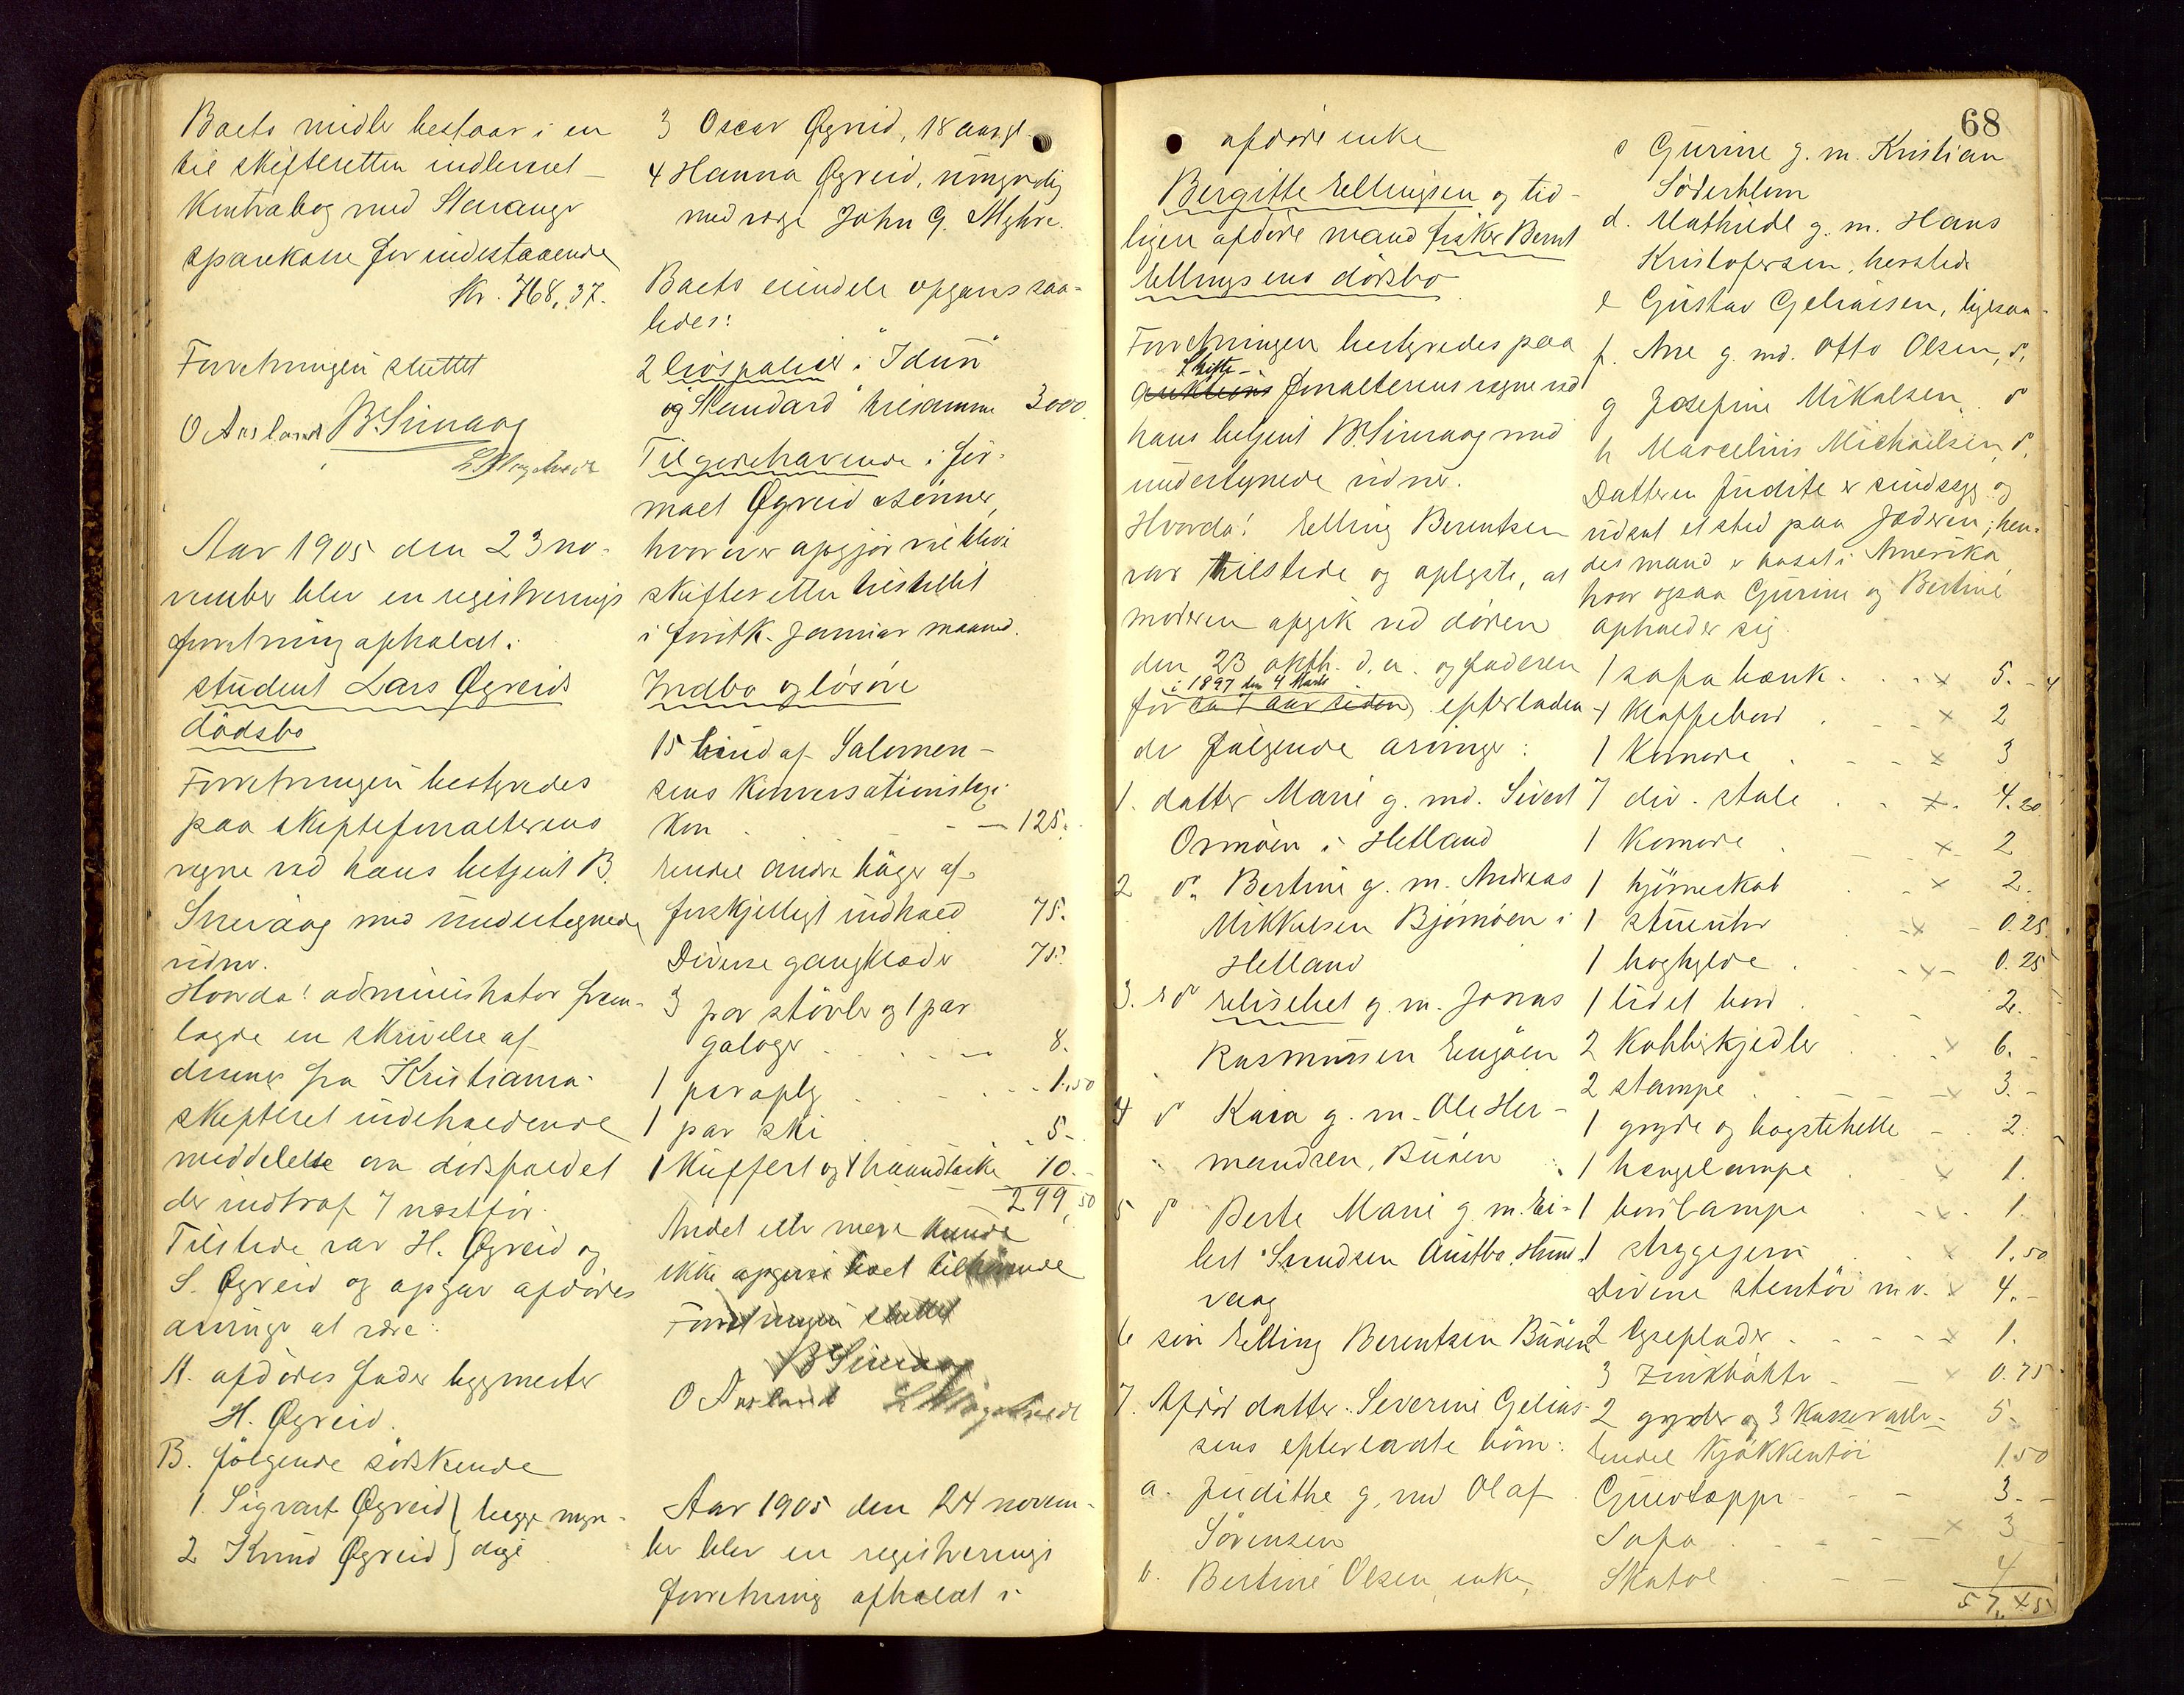 Boets midler bestaar i en
til skifteretten indleveret
Kontrabog med Stavanger
sparekasse for indestaaende
Kr. 768,37.
Forretningen sluttet
O Aasland B. Sirevaag
Aar 1905 den 23 no-
vember blev en registrerings
forretning afholdt i
student Lars Øgreids
dødsbo
Forretningen bestyredes
paa skifteforvalterens
vegne ved hans betjent B.
Sirevaag med undertegnede
vidner.
Hvorda! administrator frem-
lagde en skrivelse af
dennes fra Kristiania
skifteret indeholdende
meddelelse om dødsfaldet
der indtraf 7 næstfør.
Tilstede var H. Øgreid og
S. Øgreid og opgav afdødes
arvinger at være:
A. afdødes fader bygmester
H. Øgreid.
B. følgende søskende
1. Sigvart Øgreid } begge myn-
2 Knud Øgreid } dige
3 Oscar Øgreid, 18 aar gl.
4 Hanna Øgreid, umyndig
med verge John G. Myhre.
Boets eiendele opgaves saa-
ledes:
2 livspolicer i "Idun"
og "Standard" tilsammen 3000.
Tilgodehavende i fir-
maet Øgreid & sønner,
hvorover opgjør vil blive
skifteretten tilstillet
i førstk. januar maaned.
Indbo og løsøre
15 bind af Salomon-
sens Konversationslexi-
kon - - 125.
Endel andre bøger af
forskjelligt indhold 75.
Diverse gangklæder 75.
3 par støvler og 1 par
galoger 8.
1 paraply 1.50
1 par ski 5.-
1 Kuffert og 1 haandtaske 10.-
299,50
Andet eller mere kunde
ikke opgives boet tilhørende
Forretningen sluttet
B Sirevaag
O Aasland
Aar 1905 den 24 novem-
ber blev en registrerings
forretning afholdt i
68
afdøde enke
Bergitte Ellingsen og tid-
ligere afdøde mand fisker Bernt
Ellingsens dødsbo
Forretningen bestyredes paa
Skifte-
auktions forvalterens vegne ved
hans betjent B. Sirevaag med
undertegnede vidner.
Hvorda! Elling Berentsen
var tilstede og oplyste, at
moderen afgik ved døden
den 23 oktb. d. a. og faderen
i 1897 den 4 Marts
for ca 7 aar siden, efterladen
de følgende arvinger:
1. datter Marie g. md. Sivert
Osmoen i Hetland
2 do. Bertine g. m. Andreas
Mikkelsen Bjørnøen i
Hetland
3. do Elisebet g. m. Jonas
Rasmussen Engøen
4 do Kaia g. m. Ole Her-
mandsen, Buøen
5 do Berte Marie g. m. Ei-
lert Svendsen Austbø, Hund-
vaag
6 søn Elling Berentsen Buøen
7. Afdød datter Severine Gelias-
sens efterladte børn:
a. Judithe g. md Olaf
Sørensen
b. Bertine Olsen, enke,
c Gurine g. m. Kristian
Söderblom
d. Mathilde g. m. Hans
Kristofersen, hersteds
e Gustav Geliassen, ligesaa.
f. Ane g. md. Otto Olsen, do.
g Josefine Mikalsen, do
h Marcelius Michaelsen, do.
Datteren Judite er sindssyg og
udsat etsted paa Jæderen; hen-
des mand er bosat i Amerika
hvor ogsaa Gurine og Bertine
opholder sig.
1 sofabænk x 5.-
1 Klaffebord x 2
1 Komode x 3
7 div. stole x 4.20
1 Komode x 2
1 hjørneskab x 2.
1 stueuhr x 0.25
1 boghylde x 0.25
1 lidet bord 2.
2 Kobberkjedler x 6.
2 stampe 3.-
1 gryde og bagstehelle 2.
1 hængelampe x 1.
1 bordlampe x 1.
1 strygejern x 1,50
Diverse stentøi m.v. x 4.-
2 lyseplader x 1.
3 zinkbøtter x 0.75
2 gryder og 3 Kasseroller 5.
Endel Kjøkkentøi 1.50
Gulvtæppe 3.-
Sofa x 3
Skatol 4
57,45